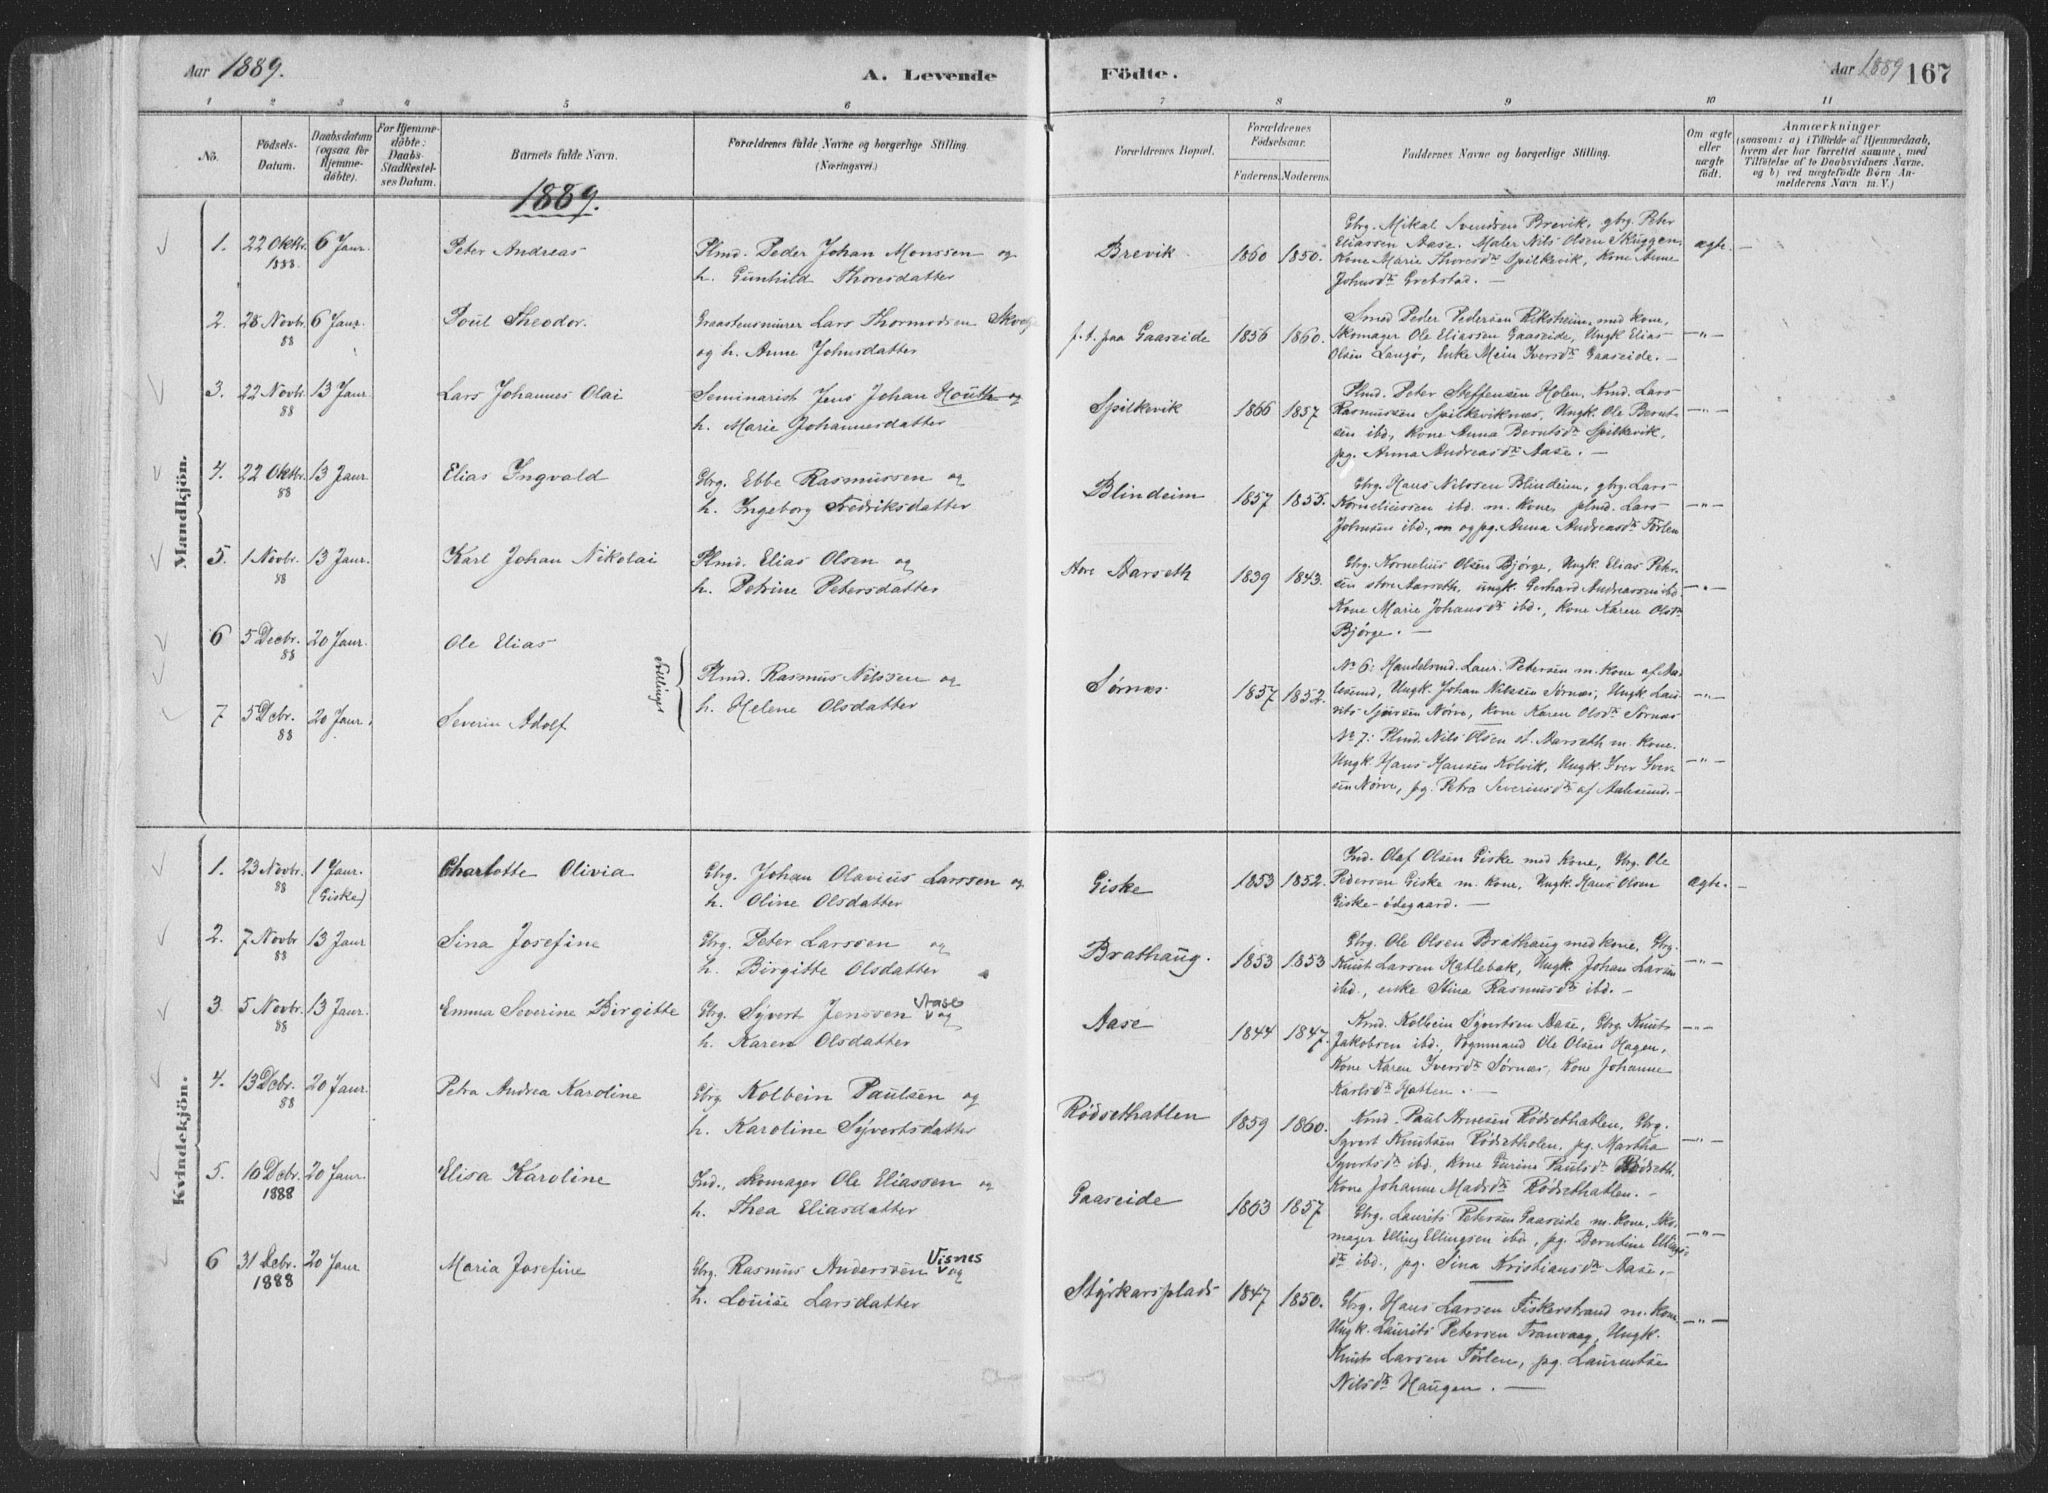 Aar 1889.
A. Levende
Födte.
Aar 1889
167
1 2 3 4 5 6 7 8 9 10 11
No.
Födsels-
Datum.
Daabsdatum
(ogsaa for
Hjemme-
döbte).
For Hjemme-
döbte:
Daabs-
Stadfæstel-
ses Datum.
Barnets fulde Navn.
Forældrenes fulde Navne og borgerlige Stilling.
(Næringsvei.)
Forældrenes Bopæl.
Forældrenes
Födselsaar.
Faderens. Moderens.
Faddernes Navne og borgerlige Stilling.
Om ægte
eller
uægte
födt.
Anmærkninger
(saasom: a) i Tilfælde af Hjemmedaab,
hvem der har forrettet samme, med
Tilföielse af to Daabsvidners Navne,
og b) ved uægtefödte Börn An-
melderens Navn m. V.)
1889.
Mandkjön.
1. 22 Oktbr. 1888 6 Janr. Peter Andreas
Plmd. Peder Johan Monssen og
h. Gunhild Thoresdatter
Brevik 1860 1850.
Gbrg. Mikal Svendsen Brevik, gbrg. Peter
Eliassen Aase. Maler Nils Olsen Skuggen.
Kone Marie Thoresdtr Spilkevik, Kone Anne
Johnsdtr Gretstad. —
ægte. —
2. 28 Novbr. 88 6 Janr. Poul Theodor.
Graastensmurer Lars Thormodsen
og h. Anne Johnsdatter
p.t. paa Gaaseide 1856 1860.
Smed Peder Pedersen Riksheim, med kone,
Skomager Ole Eliassen Gaaseide, Ungk Elias
Olsen Langø, Enke Iversdtr Gaaseide. —
—"—
3. 22 Novbr. 88 13 Janr. Lars Johannes Olai
Seminarist Jens Johan Houth og
h. Marie Johannesdatter
Spilkevik 1866 1857
Plmd. Peter Steffensen Holen, Kmd. Lars
Rasmussen Spilkeviknæs, Ungk. Ole Bernt-
sen ibd, Kone Anna Berntsdtr Spilkevik,
pg. Anna Andreasdtr Aase. —
—"—
4. 22 Oktbr. 88 13 Janr Elias Ingvald
Gbrg. Ebbe Rasmussen og
h. Ingeborg Fredriksdatter
Blindeim 1857 1855.
Gbrg. Hans Nilssen Blindeim, gbrg. Lars
Korneliussen ibd. m. kone, plmd. Lars
Johnsen ibd., og pg. Anna Andreasdtr Förlen
—"—
5. 1 Novbr. 88 13 Janr. Karl Johan Nikolai
Plmd. Elias Olsen og
h. Petrine Petersdatter
store Aarseth 1839 1843.
Gbrg. Kornelius Olsen Bjørge, Ungk Elias Peter-
sen store Aarseth, ungk. Gerhard Andreassen ibd.
Kone Marie Johansdtr ibd., Kone Karen Olsdtr
Bjørge. —
—"—
6 5 Decbr. 88 20 Janr. Ole Elias
7 5 Dcbr. 88 20 Janr. Severin Adolf
Tvillinger
Plmd. Rasmus Nilssen og
h. Helene Olsdatter
Sørnæs 1857 1852.
No 6: Handelsmd. Laur. Petersen m. kone af Aa-
lesund, Ungk. Johan Nilssen Sørnæs, Ungk Lau-
rits Nørve, Kone Karen Olsdtr Sørnæs
—"—
No 7: Plmd. Nils Olsen st. Aarseth m. kone.
Ungk. Hans Hansen Kolvik, Ungk. Iver Iver-
sen Nørve, pg. Petra Severinsdtr af Aalesund. —
—"—
Kvindekjön.
1. 23 Novbr. 88 1 Janr. (Giske) Charlotte Olivia
Gbrg. Johan Olavius Larssen og
h. Oline Olsdatter
Giske 1853 1852.
Ind. Olaf Olsen Giske med kone, Gbrg. Ole
Pedersen Giske m. kone, Ungk. Hans Olsen
Giske-ödegaard. —
ægte. —
2. 7 Novbr 88 13 Janr Sina Josefine
Gbrg. Peter Larssen og
h. Birgitte Olsdatter
Brathaug. 1853 1853
Gbrg. Ole Olsen Brathaug med kone, Gbrg.
Knut Larsen Hatlebak, Ungk. Johan Larsen
ibd., enke Stina Rasmusdtr ibd. —
—"—
3. 5 Novbr. 88 13 Janr. Emma Severine Birgitte
Gbrg. Syvert Jenssen Aase og
h. Karen Olsdatter
Aase 1844 1847.
Kmd. Kolbein Syvertsen Aase, Gbrg. Knut
Jakobsen ibd., Vognmand Ole Olsen Hagen,
Kone Karen Iversdtr Sørnæs, Kone Johanne
Karlsdtr Hatlen. —
—"—
4. 13 Dcbr. 88 20 Janr. Petra Andrea Karoline
Gbrg Kolbein Paulsen og
h. Karoline Syvertsdatter
Rödsethatlen 1859 1860.
Kmd. Paul Arnesen Rödsethatlen, Gbrg.
Syvert Knutsen Rödsetholen, pg. Martha
Syvertsdtr ibd, Kone Gurine Paulsdtr Rödseth,
Kone Johanne Madsdtr Rödsethatlen. —
—"—
5. 10 Dcbr. 1888 20 Janr. Elisa Karoline
Ind., skomager Ole Eliassen og
h. Thea Eliasdatter
Gaaseide 1863 1857.
Gbrg. Laurits Petersen Gaaseide m. kone, Sko-
mager Elling Ellingsen ibd, pg. Berntine Ellings-
dtr ibd., pg. Sina Kristiansdtr Aase. —
—"—
6 31 Dcbr. 1888 20 Janr Maria Josefine
Gbrg. Rasmus Anderssen Visnes og
h. Louise Larsdatter
Styrkarsplads 1847 1850.
Gbrg. Hans Larsen Fiskerstrand m. kone
Ungk. Laurits Petersen Tranvaag, Ungk.
Knut Larsen Förlen, pg. Laurentse
Nilsdtr Haugen. —
—"—